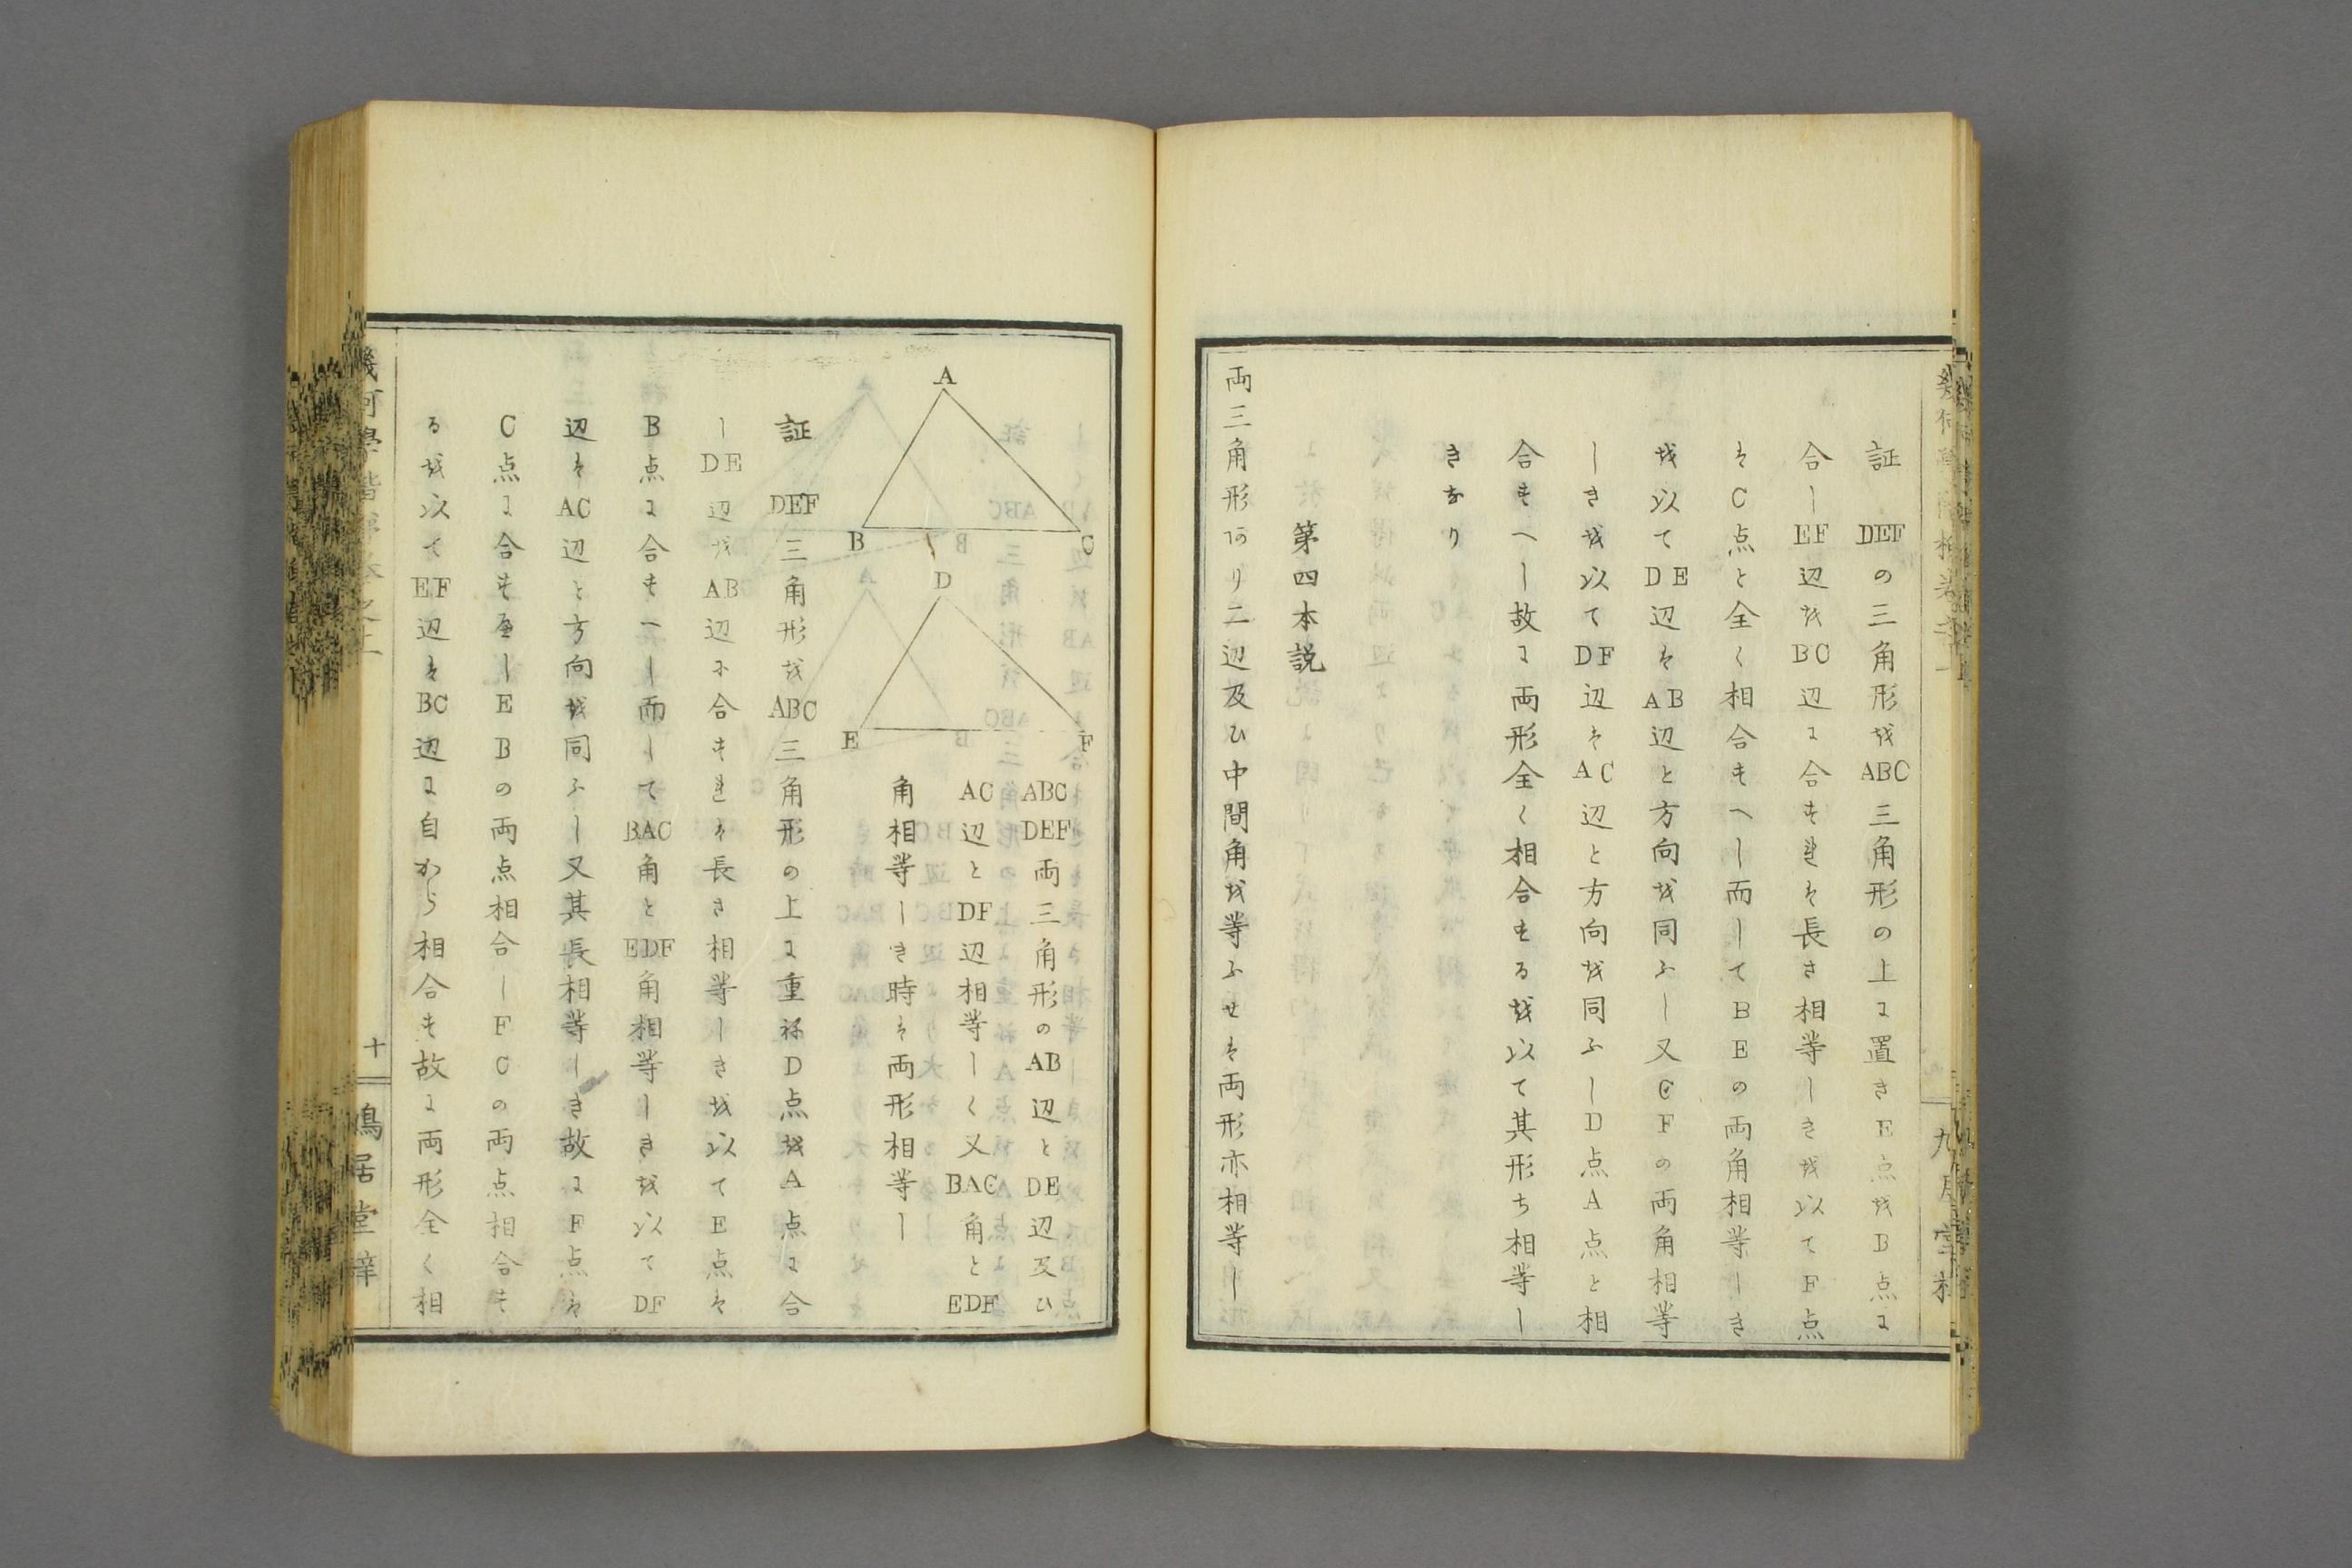 証 DEFの三角形を ABC三角形の上に置きE点をB点に
合しEF辺をBC辺に合すれは長さ相等しきを以てF点
はC点と全く相合すへし而してBEの両角相等しき
を以てDE辺はAB辺と方向を同ふし又CFの両角相等
しきを以てDF辺はAC辺と方向を同ふしD点A点と相
合すへし故に両形全く相合するを以て其形ち相等し
きなり
第四本説
両三角形アリ二辺及ひ中間角を等ふせは両形亦相等し
A
B
C
D
E
F
ABC DEF両三角形のAB辺とDE辺及ひ
AC辺とDF辺相等しく又BAC角とEDF
角相等しき時は両形相等し
証 DEF三角形をABC三角形の上に重ねD点をA点に合
しDE辺をAB辺に合すれは長さ相等しきを以てE点は
B点に合すへし而してBAC角とEDF角相等しきを以てDF
辺はAC辺と方向を同ふし又其長相等しき故にF点は
C点に合すへしEBの両点相合しFCの両点相合す
るを以てEF辺はBC辺に自から相合す故に両形全く相
十